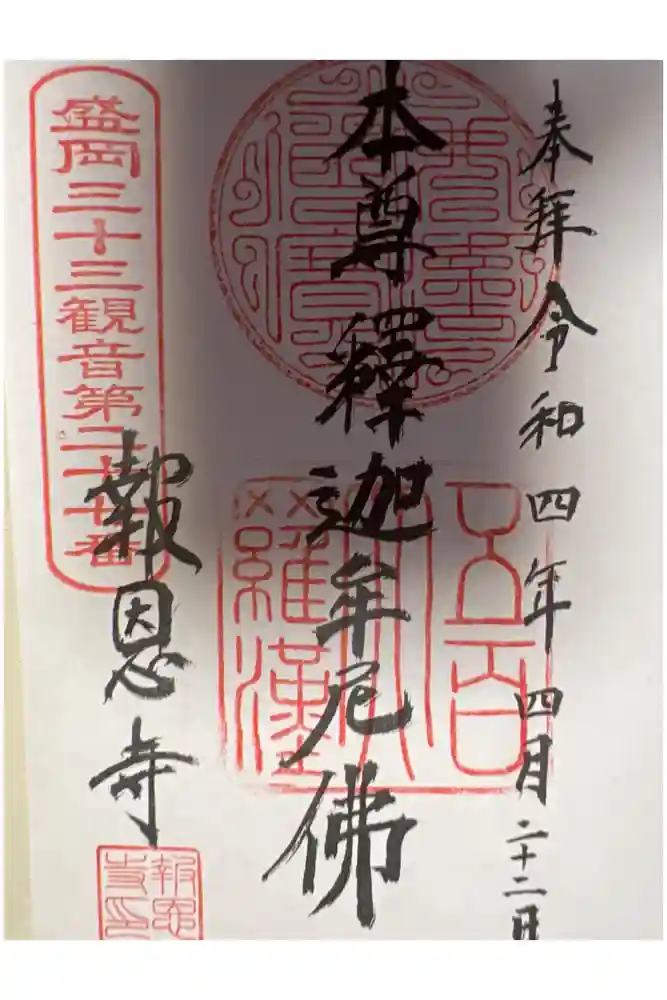 奉拝令和四年四月二十二日
本尊釋迦牟尼佛
五百
羅漢
盛岡三十三観音第二十七番
報恩寺
報恩
寺印